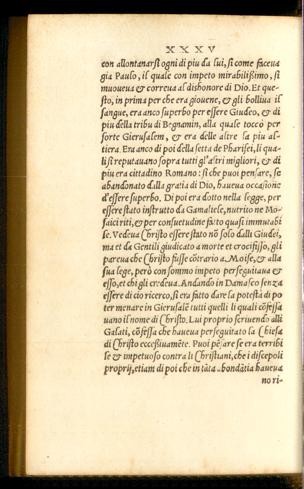 XXXV
con allontanarsi ogni di piu da lui, si come faceua
gia Paulo, il quale con impeto mirabilißimo, si
muoueua & correua al dishonore di Dio. Et que-
sto, in prima per che era giouene, & gli bolliua il
sangue, era anco superbo per essere Giudeo, & di
piu della tribu di Begnamin, alla quale toccò per
sorte Gierusalem, & era delle altre la piu al-
tiera. Era anco di poi della setta de Pharisei, li qua-
li si reputauano sopra tutti gl'altri migliori, & di
piu era cittadino Romano: si che puoi pensare, se
abandonato dalla gratia di Dio, haueua occasione
d'essere superbo. Di poi era dotto nella legge, per
essere stato instrutto da Gamaliele, nutrito ne Mo-
saici riti, & per consuetudine fatto quasi immutabi
le. Vedeua Christo essere stato nõ solo dalli Giudei,
ma et da Gentili giudicato a morte et crocifisso, gli
pareua che Christo fusse cõtrario a Moise, & alla
sua legge, però con sommo impeto perseguitaua &
esso, et chi gli credeua. Andando in Damasco senza
essere di cio ricerco, si era fatto dare la potestà di po
ter menare in Gierusalẽ tutti quelli li quali cõfessa
uano il nome di Christo. Lui proprio scriuendo alli
Galati, cõfessa che haueua perseguitato la Chiesa
di Christo eccessiuamẽte. Puoi pẽsare se era terribi
le & impetuoso contra li Christiani, che i discepoli
proprij, etiam di poi che in tãta bondãtia haueua
no ri-